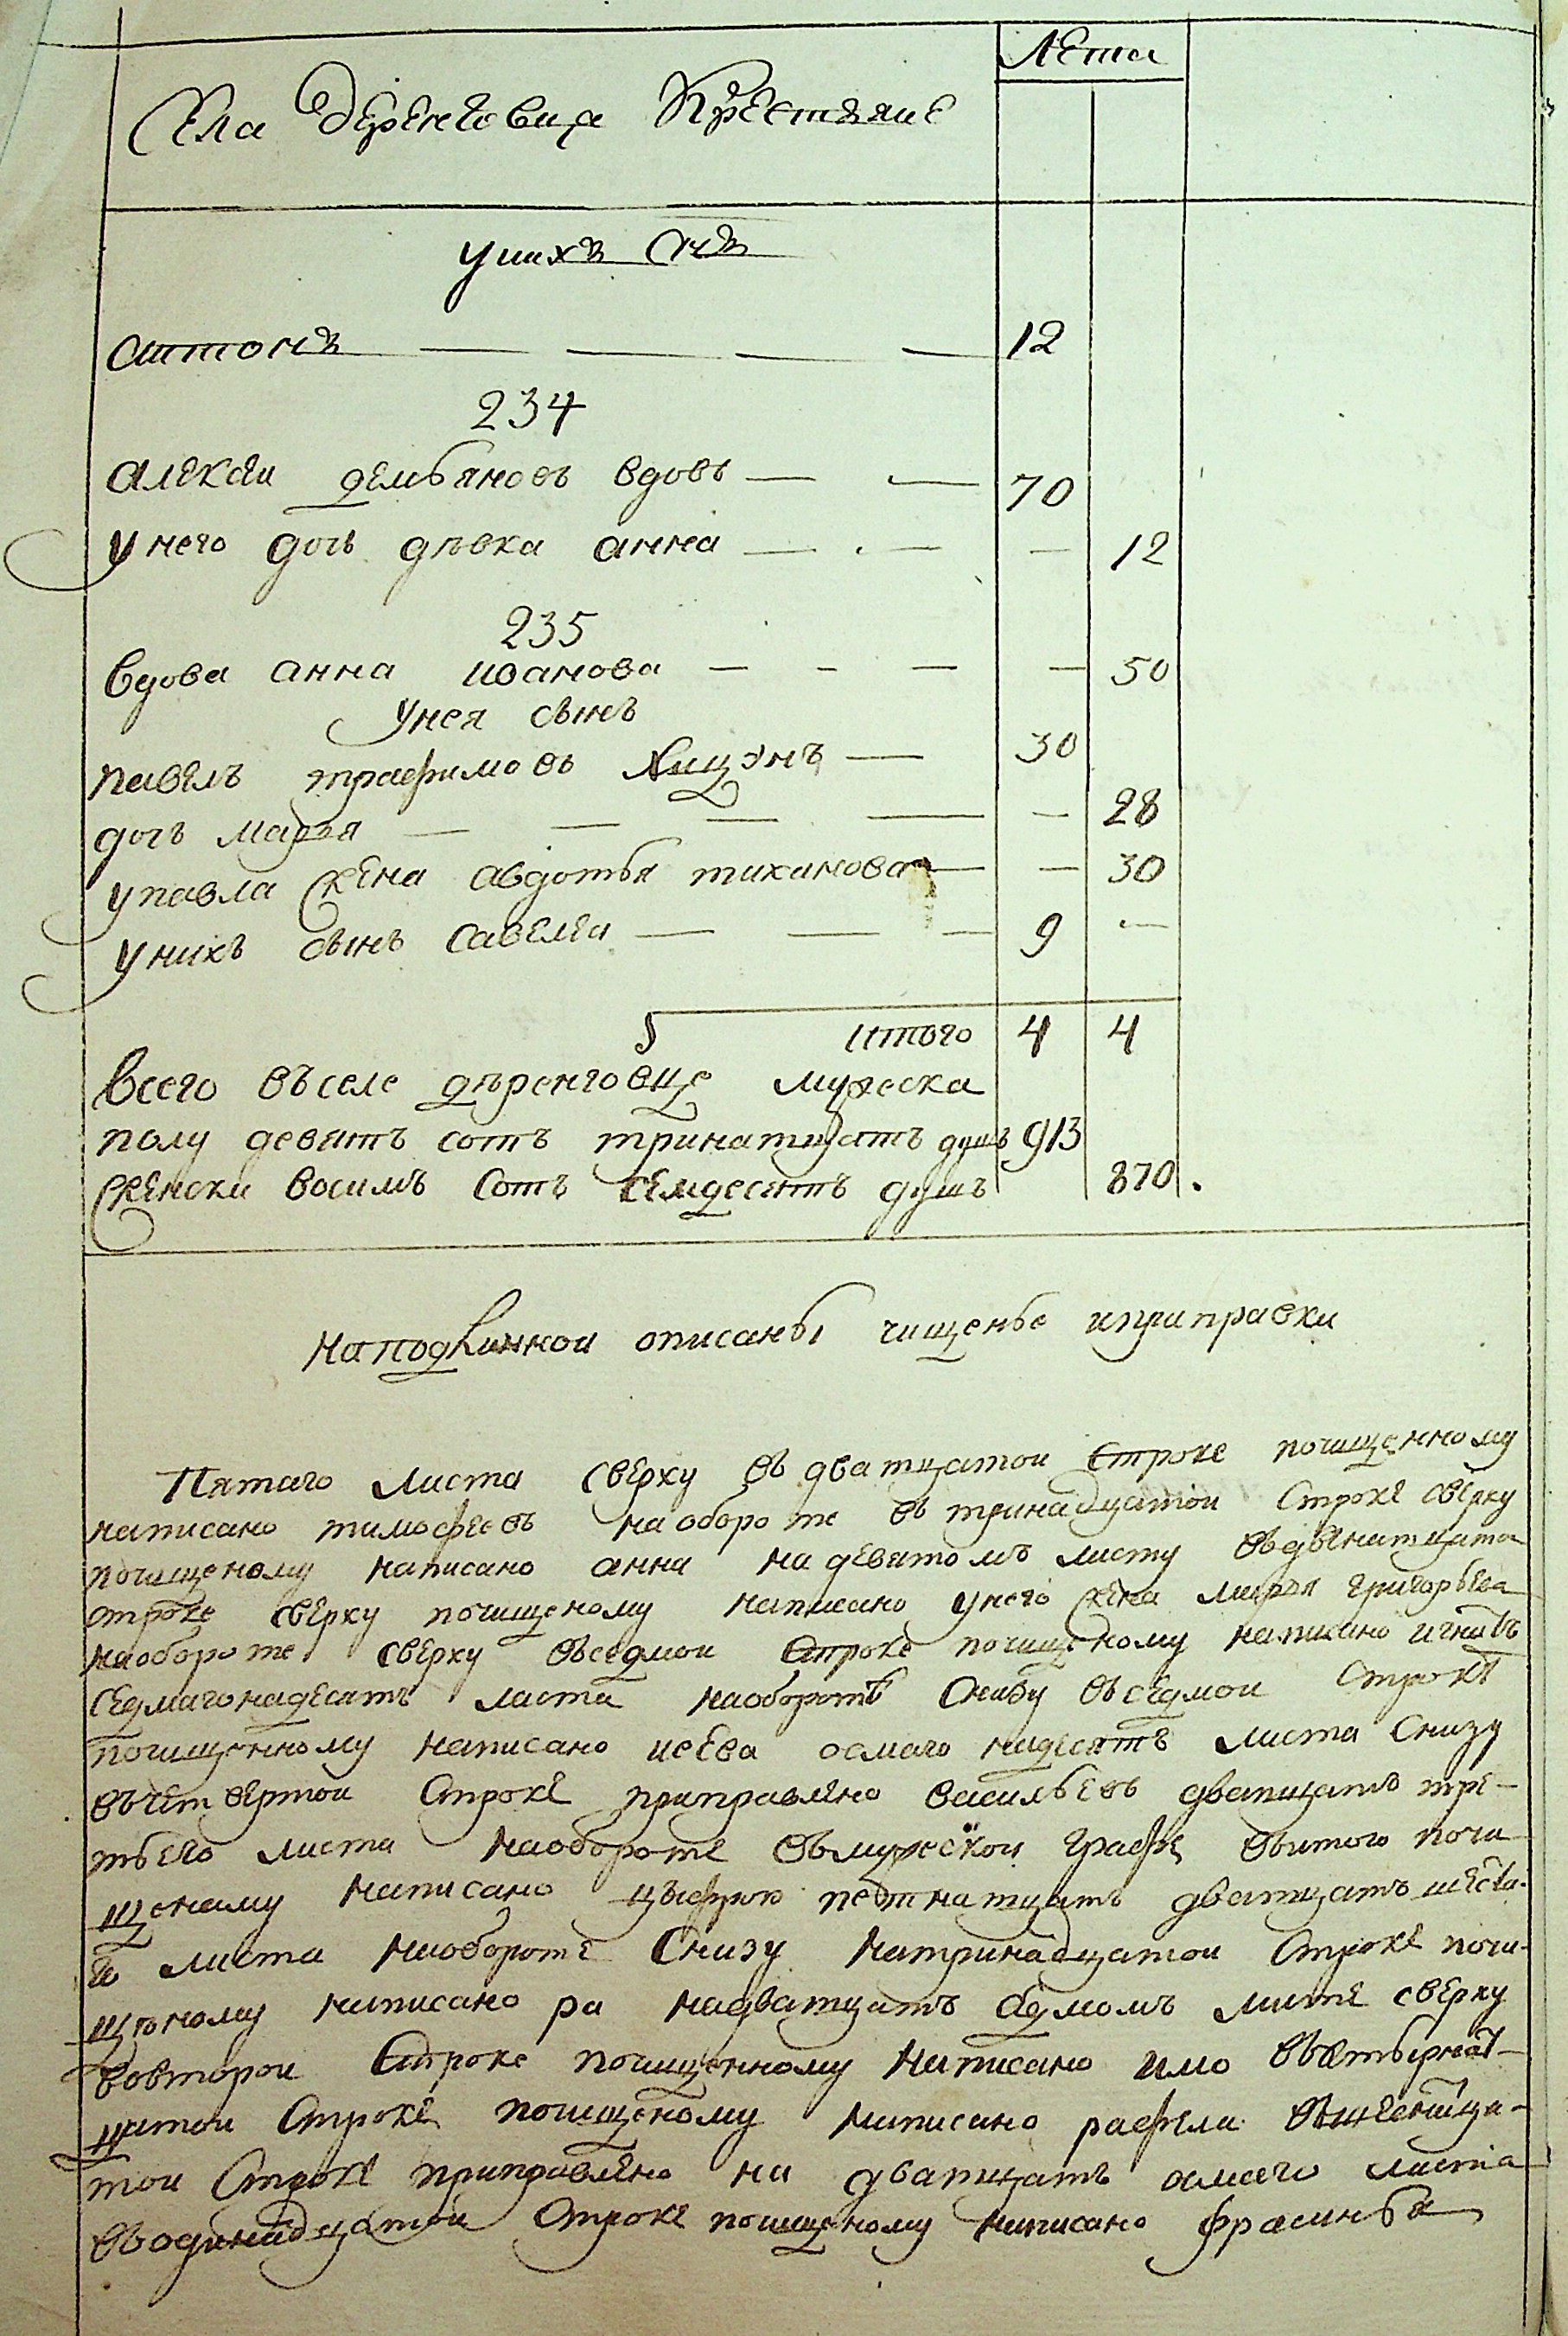 Лета
Села Деренговца Крестяне
у них снъ
антонъ — — — — 12
234
алексеи демьяновъ вдовъ — — 70
у него дочь дѣвка анна — — — 12
235
вдова анна иванова — — — — 50
у нея сынъ
павелъ трафимовъ — 30
дочь марья — — — — — 28
у павла жена авдотья тиханова — — 30
у нихъ сынъ савелеи — — — 9 —
итого 4 4
всего въ селе деренговце мужеска
полу девятъ сотъ тринатцать душъ 913
женска восимъ сотъ семдесятъ душъ 870.
на подлиннои описаны чищенье и приправки
Пятаго листа сверху въ дватцатои строке почищенному
написано тимофеевъ на обороте въ тринадцатои строке сверху
почищеному написано анна на девятомъ листу въ двенатцата
строке сверху почищеному написано у него жена марья григорьева
на обороте сверху въ седмои строке почищеному написано игнатъ
седмагонадесять листа на оборотѣ снизу въ седмои строке
почищенному написано осмаго надесять листа снизу
въ четвертои строке приправлено васильевъ дватцать тре-
тьего листа на обороте въ мужескои графе въ итого почи
щеному написано цыфрою петнатцать дватцать шеста-
го листа на обороте снизу на тринадцатои строке почи-
щеному написано ра на дватцать седмомъ листе сверху
во второи строке почищенному написано имо въ четырнат-
цатои строке почищеному написано рафела
тои строке приправлено на дватцать осмаго листа
въ одинадцатои строке почищеному написано фрасинья